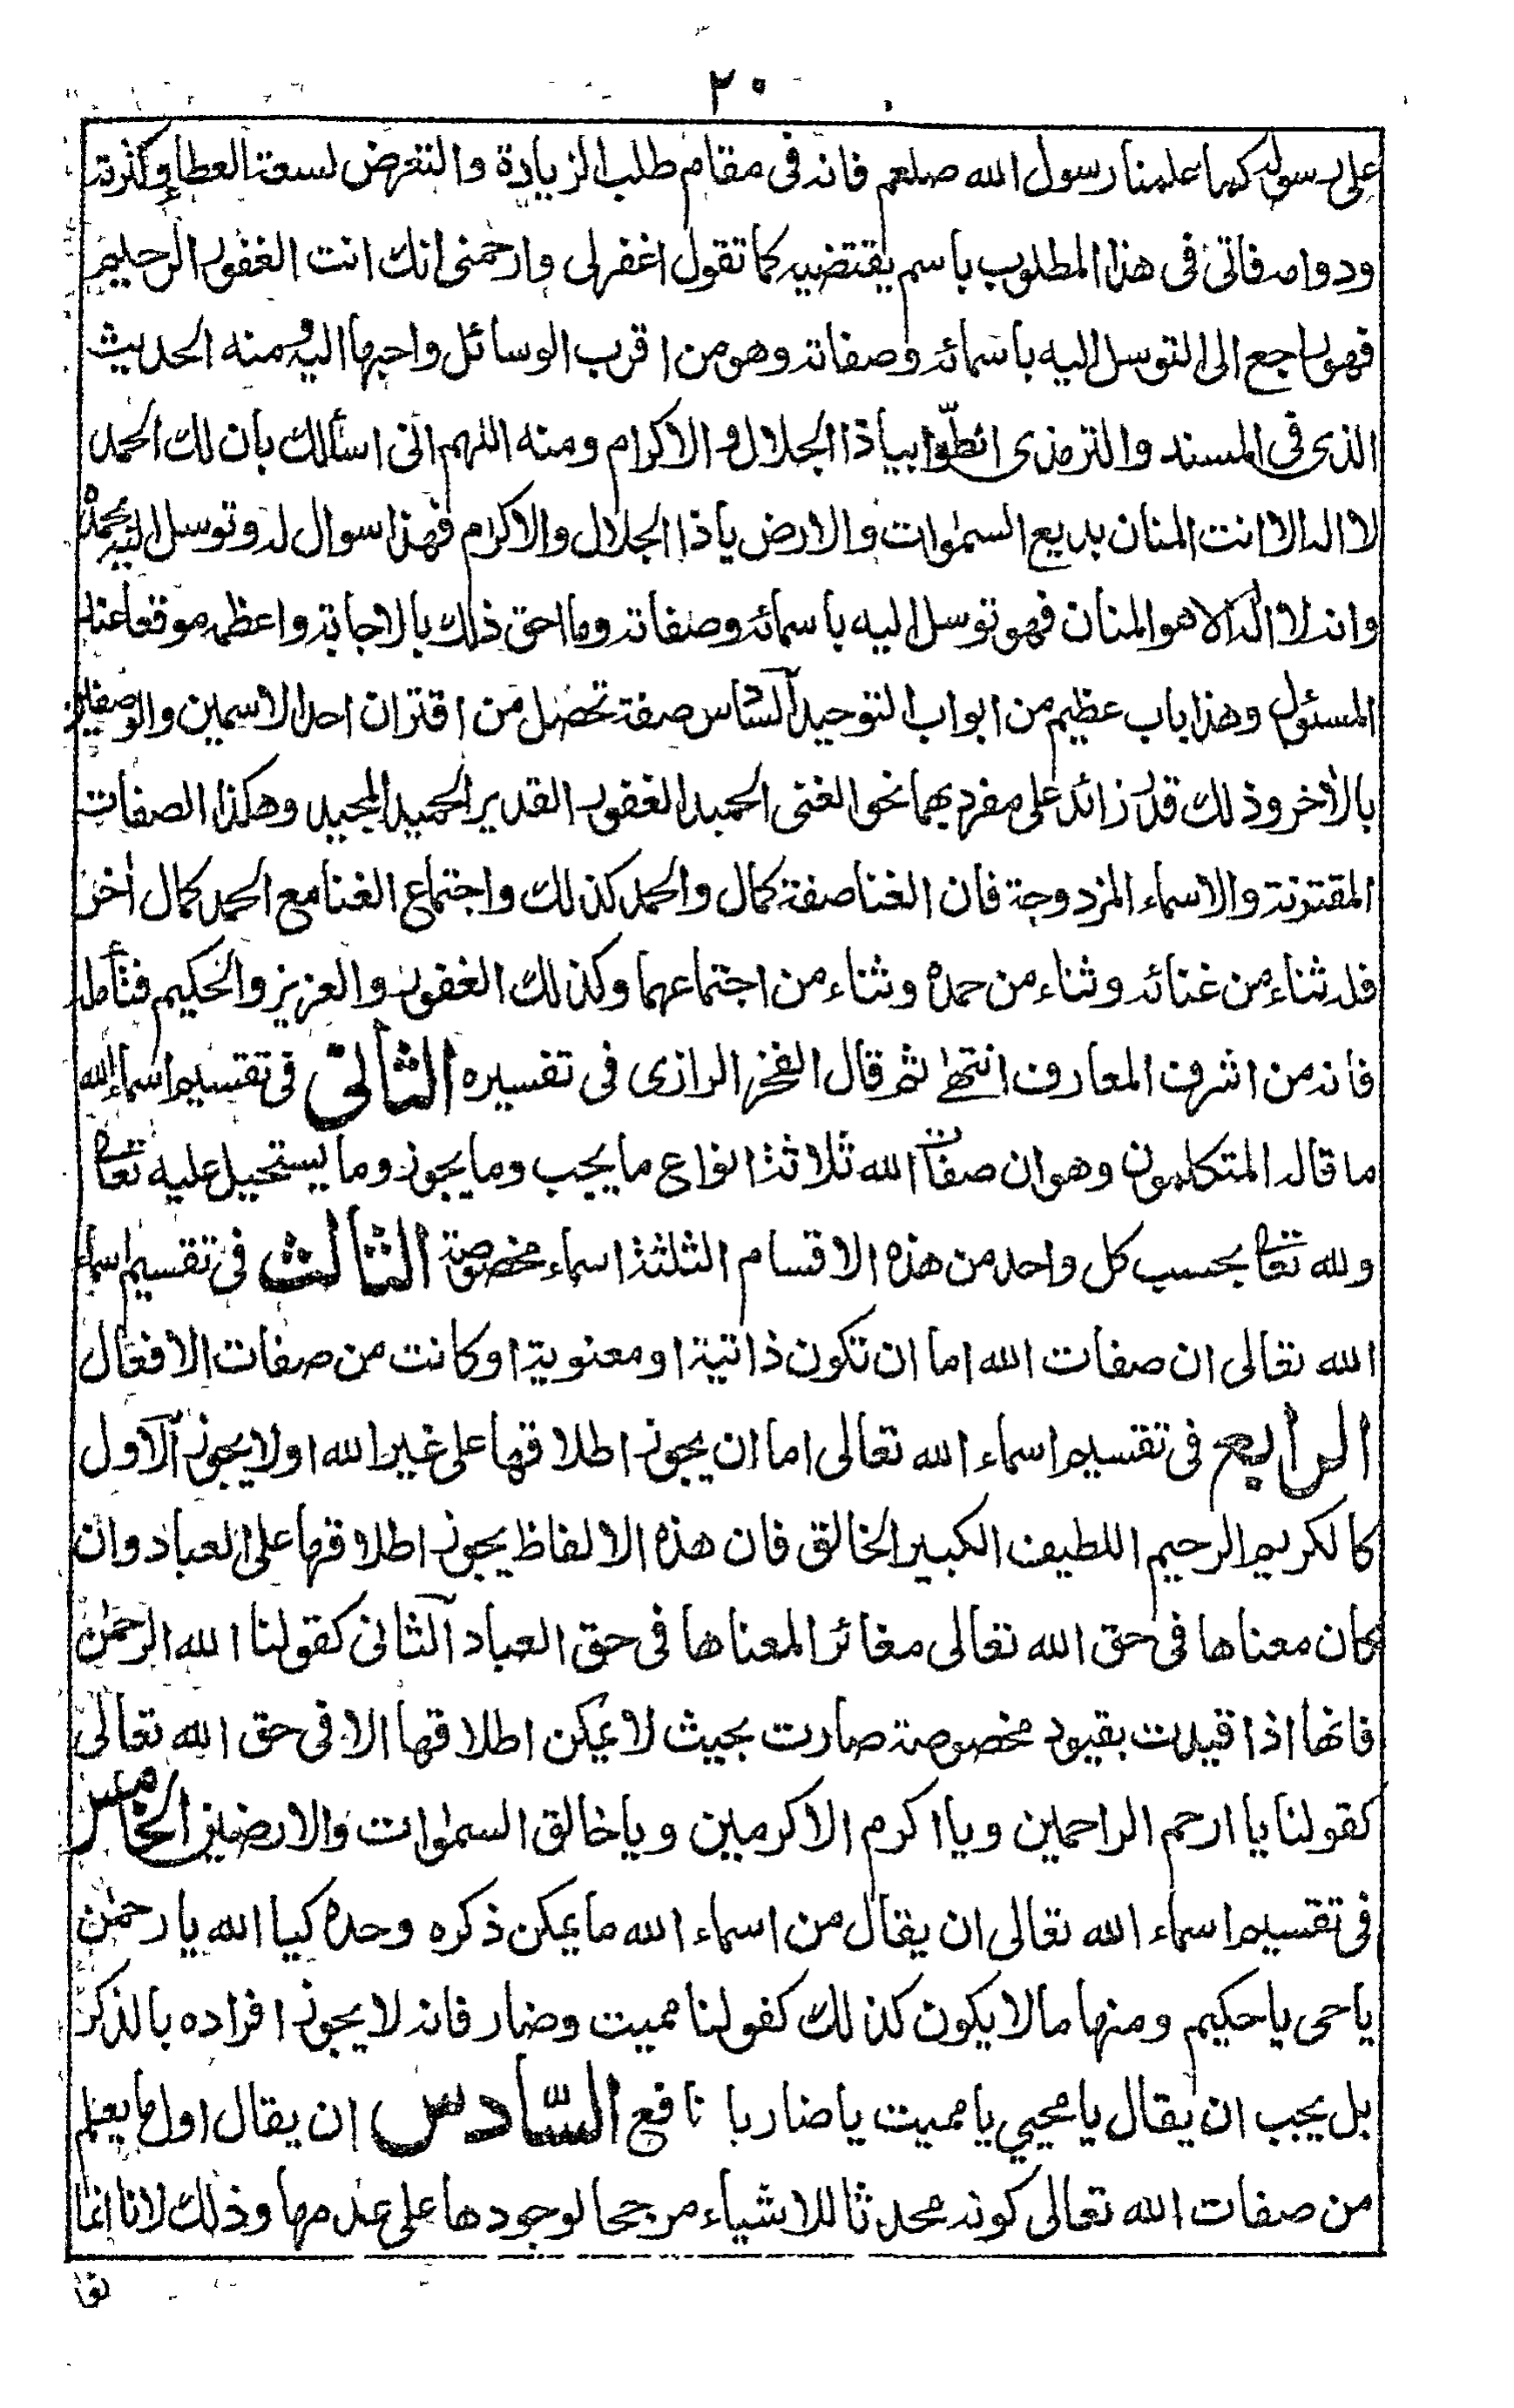 ٢٠
على رسوله كما علمنا رسول الله صلعم فانه فى مقام طلب الزيادة والتعرض لسعة العطاء وكثرته
ودوامه فاتى فى هذا المطلوب باسم يقتضيه كما تقول اغفرلى وارحمنى انك انت الغفور الرحيم
فهو راجع الى التوسل اليه باسمائه وصفاته وهو من اقرب الوسائل واحبها اليه ومنه الحديث
الذى فى المسند والترمذى الظوا بياذا الجلال والاكرام ومنه اللهم انى اسألك بان لك الحمد
لا اله الا انت المنان بديع السموات والارض ياذا الجلال والاكرام فهذا سوال له وتوسل اليه بحمده
وانه لا اله الا هو المنان فهو توسل اليه باسمائه وصفاته وما احق ذلك بالاجابة واعظمه موقعا عند
المسئول وهذا باب عظيم من ابواب التوحيد السادس صفة تحصل من اقتران احد الاسمين والوصفين
بالآخر وذلك قدر زائد على مفرديهما نحو الغنى الحميد الغفور القدير الحميد المجيد وهكذا الصفات
المقترنة والاسماء المزدوجة فان الغنا صفة كمال والحمد كذلك واجتماع الغنا مع الحمد كمال اخر
فله ثناء من غنائه وثناء من حمده وثناء من اجتماعهما وكذلك الغفور والعزيز والحكيم فتأمله
فانه من اشرف المعارف انتهى ثم قال الفخر الرازى فى تفسيره الثانى فى تقسيم اسماء الله
ما قاله المتكلمون وهو ان صفات الله ثلاثة انواع ما يجب وما يجوز وما يستحيل عليه تعالى
ولله تعالى بحسب كل واحد من هذه الاقسام الثلثة اسماء مخصوصة الثالث فى تقسيم اسماء
الله تعالى ان صفات الله اما ان تكون ذاتية او معنوية او كانت من صفات الافعال
الرابع فى تقسيم اسماء الله تعالى اما ان يجوز اطلاقها على غير الله اولا يجوز الاول
كالكريم الرحيم اللطيف الكبير الخالق فان هذه الالفاظ يجوز اطلاقها على العباد وان
كان معناها فى حق الله تعالى مغائر المعناها فى حق العباد الثانى كقولنا الله الرحمن
فانها اذا قيدت بقيود مخصوصة صارت بحيث لا يمكن اطلاقها الا فى حق الله تعالى
كقولنا يا ارحم الراحمين ويا اكرم الاكرمين ويا خالق السموات والارضين الخامس
فى تقسيم اسماء الله تعالى ان يقال من اسماء الله ما يمكن ذكره وحده كيا الله يا رحمن
يا حى يا حكيم ومنها ما لا يكون كذلك كقولنا مميت وضار فانه لا يجوز افراده بالذكر
بل يجب ان يقال يا محيي يا مميت يا ضار يا نافع السادس ان يقال اول ما يعلم
من صفات الله تعالى كونه محدثا للاشياء مرجحا لوجودها على عدمها وذلك لانا انما